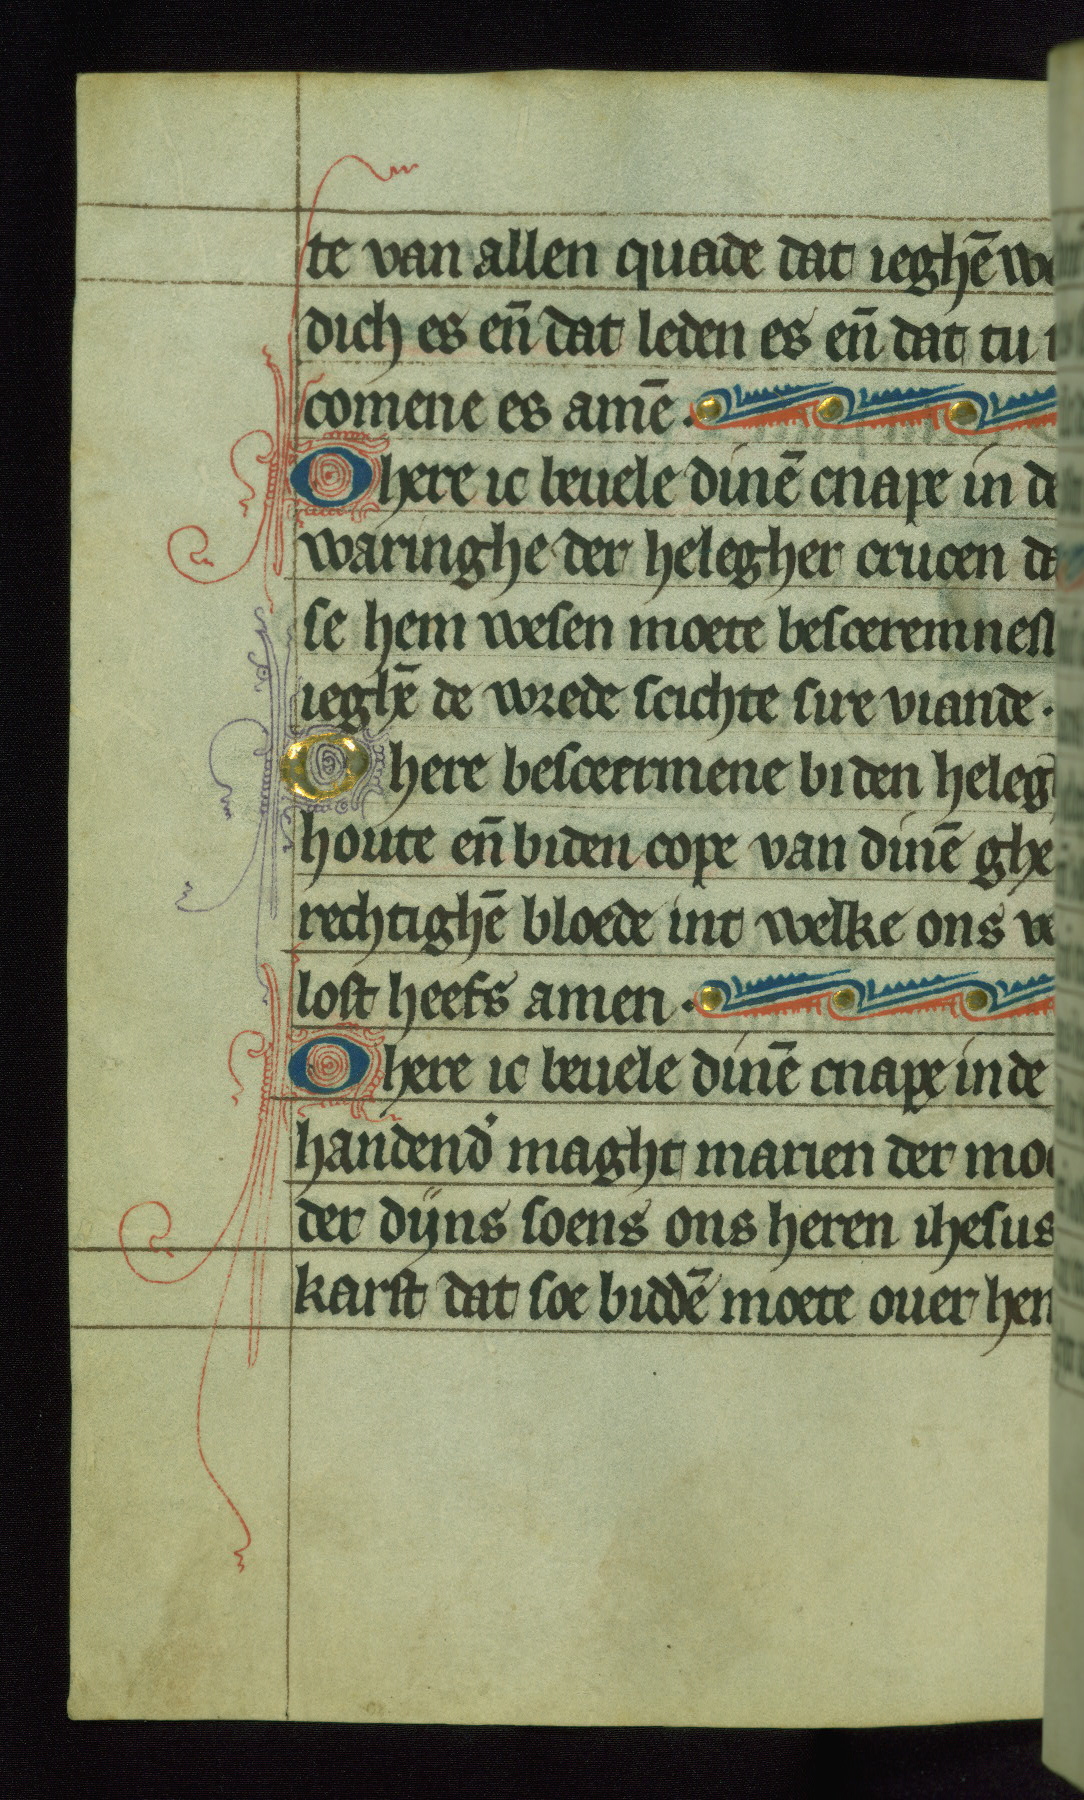 te van allen quade dat ieghē
dich es en̄ dat leden es en̄ dat tu
comene es amē ·
O here ic beuele dinē cnape in
waringhe der helegher crucen
se hem wesen moete
ieghē de wrede scichte sire viande ·
O here besceermene biden
houte en̄ biden cope van dinē
rechtighē bloede int welke ons
lost heefs amen ·
O here ic beuele dinē cnape in de
handen d' maght marien der
der dijns soens ons heren ihesus
karst dat soe biddē moete ouer